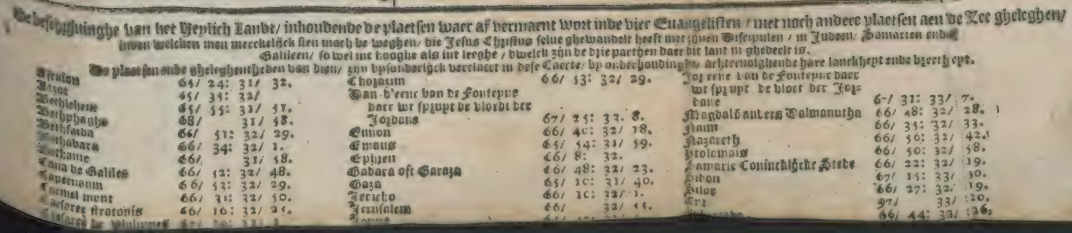 De beschrijvinghe van het Heylich Landt/ inhoudende de plaetsen waer af vermaent wort inde vier Euangelisten / met noch andere plaetsen aen de Zee gheleghen/
inden welcken men merckelijck sien mach de weghen, die Jesus Christus selue ghewandelt heeft met zijnen Discipulen / in Judeen, Samarien ende
Galileen/ so wel int hooghe als int leeghe / dwelck zijn de drie partijen daer dit lant in ghedeelt is.
De plaetsen ende gheleghentheden van dien/ zijn bysonderlijck verclaert in dese Caerte, by onderhoudinghe achtervolghende hare lanckheyt ende breeth ept.
Ascalon 65/ 24: 31/ 32.
Azot 65/ 35: 32/
Bethlehem 65/ 55: 31/ 51.
Bethphaghe 68/ 31/ 58.
Bethsaida 66/ 51: 32/ 29.
Bethabara 66/ 34: 32/ 1.
Bethanie 66/ 31/ 58.
Cana de Galilee 66/ 52: 32/ 48.
Capernaum 66/ 53: 32/ 29.
Carmel mont 66/ 31: 32/ 50.
Caesaree stratonis 66/ 16: 32/ 25.
Chozaim 66/ 53: 32/ 29.
Van d'eene van de Fonteyne
daer wt spruyt de vloedt der
Jordane 67/ 25: 33. 8.
Ennon 66/ 40: 32/ 18.
Emaus 65/ 54: 31/ 59.
Ephren 66/ 8: 32.
Gadara oft Garaza 66/ 48: 32/ 23.
Gaza 65/ 10: 31/ 40.
Jericho 66/ 10: 32/ 1.
Jerusalem 66/ 32/ 55.
Jor eene van de Fonteyne daer
wt spruyt de vloet der Jor-
dane 67/ 31: 33/ 7.
Magdalo anders Dalmanutha 66/ 48: 32/ 28.
Naim 66/ 35: 32/ 33.
Nazareth 66/ 56: 32/ 42.
Ptolomais 66/ 50: 32/ 58.
Samarie Coninckijcke Stede 66/ 22: 32/ 19.
Sidon 67/ 15: 33/ 30.
Siloe 66/ 27: 32/ 19.
Tyr 97/ 33/ 20.
66/ 44: 32/ 26.